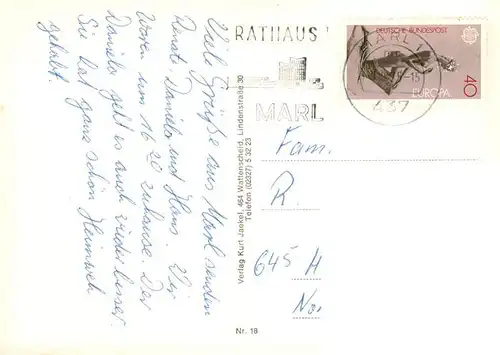 Viele Grüße aus Marl senden
Renate, Daniela und Hans. Wir
waren um 16 20 zuhause. Der
Daniela geht es auch wieder besser.
Sie hat ganz schön Heimweh
gehabt.
Verlag Kurt Jaekel, 464 Wattenscheid, Lindenstraße 30
Telefon (02327) 5 32 23
Nr. 18
RATHAUS
MARL
MARL 1
-15
437
DEUTSCHE BUNDESPOST
CEPT
EUROPA
40
Fam.
R.
645 H